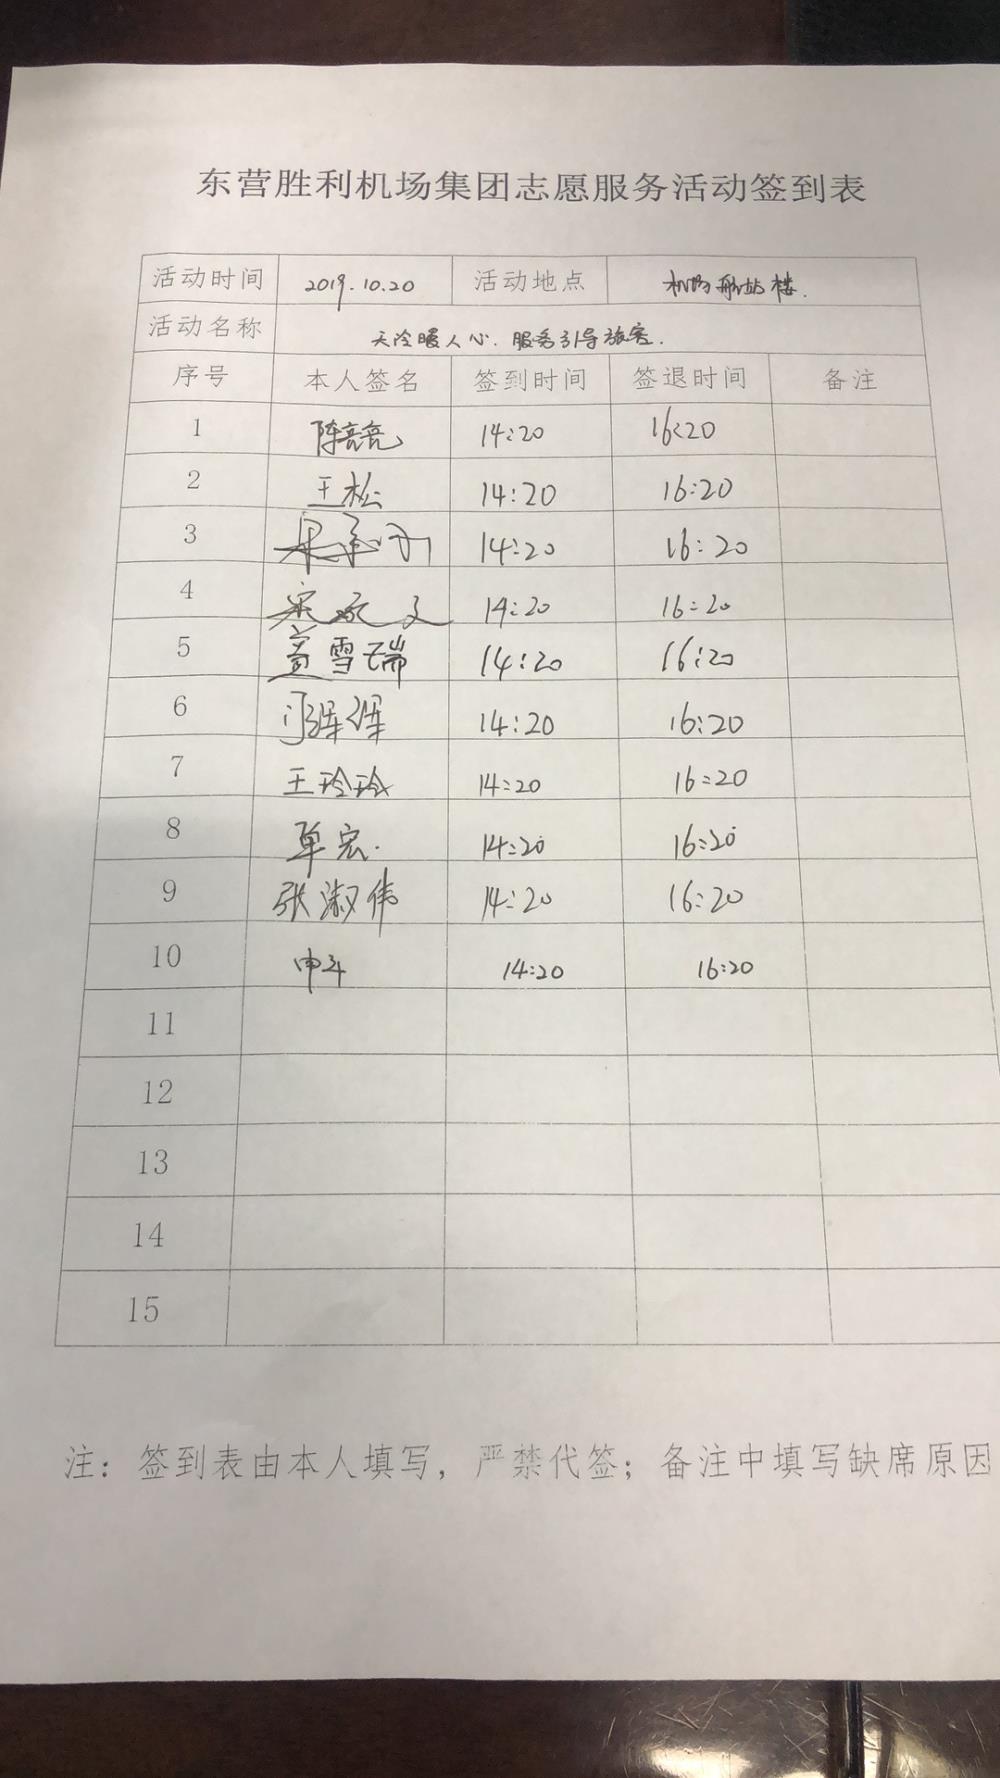 东营胜利机场集团志愿服务活动签到表
活动时间 2019.10.20 活动地点 机场航站楼.
活动名称 天冷暖人心.服务引导旅客.
序号 本人签名 签到时间 签退时间 备注
1 陈亮亮 14:20 16:20
2 王松 14:20 16:20
3 14:20 16:20
4 14:20 16:20
5 盖雪瑞 14:20 16:20
6 14:20 16:20
7 王玲玲 14:20 16:20
8 单宏. 14:20 16:20
9 张淑伟 14:20 16:20
10 14:20 16:20
11
12
13
14
15
注：签到表由本人填写，严禁代签；备注中填写缺席原因